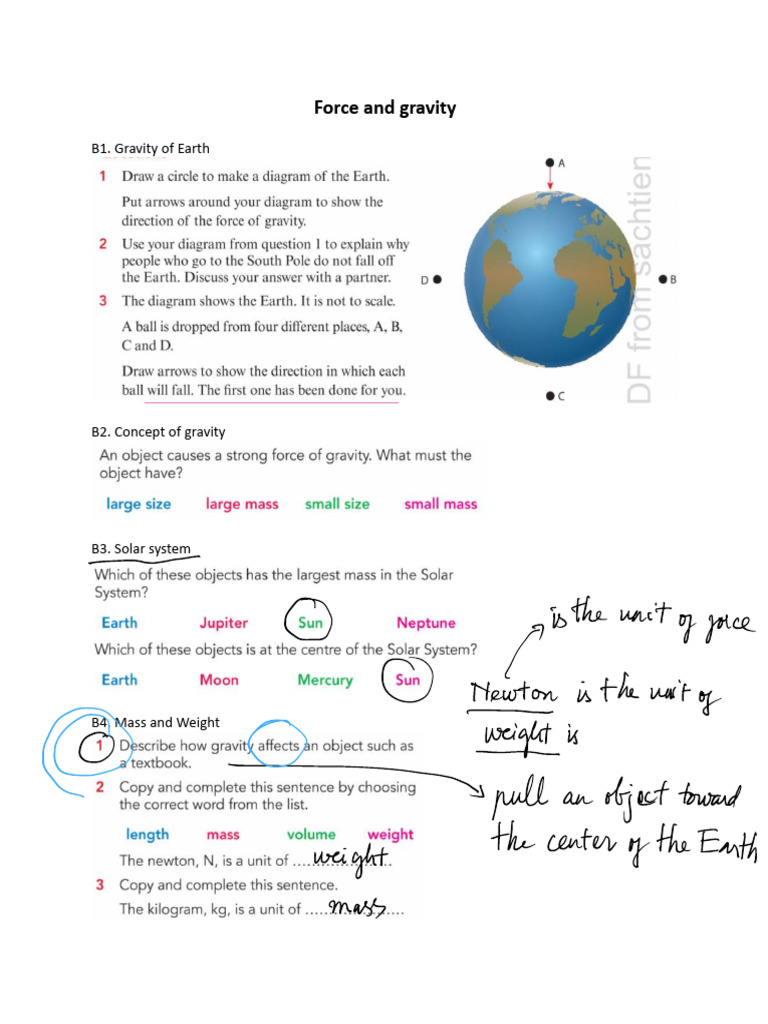 Force and gravity
B1. Gravity of Earth
1 Draw a circle to make a diagram of the Earth.
Put arrows around your diagram to show the
direction of the force of gravity.
2 Use your diagram from question 1 to explain why
people who go to the South Pole do not fall off
the Earth. Discuss your answer with a partner.
3 The diagram shows the Earth. It is not to scale.
A ball is dropped from four different places, A, B,
C and D.
Draw arrows to show the direction in which each
ball will fall. The first one has been done for you.
A
D
B
C
DF from sachtien
B2. Concept of gravity
An object causes a strong force of gravity. What must the
object have?
large size large mass small size small mass
B3. Solar system
Which of these objects has the largest mass in the Solar
System?
Earth Jupiter Sun Neptune
Which of these objects is at the centre of the Solar System?
Earth Moon Mercury Sun
is the unit of force
Newton is the unit of
weight is
B4. Mass and Weight
1 Describe how gravity affects an object such as
a textbook.
pull an object toward
the center of the Earth
2 Copy and complete this sentence by choosing
the correct word from the list.
length mass volume weight
The newton, N, is a unit of .... weight ..
3 Copy and complete this sentence.
The kilogram, kg, is a unit of ..... mass ....